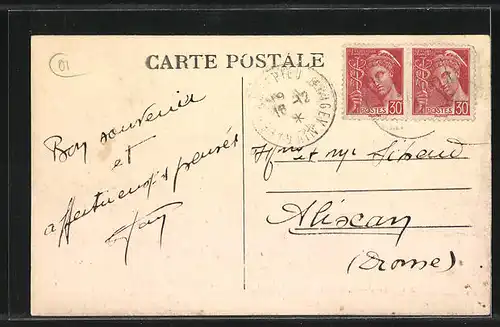 01
CARTE POSTALE
POSTES 30
POSTES 30
16 12
*
Bon souvenir
et
affectueuses pensées
et Mr
Alixan
(Drome)